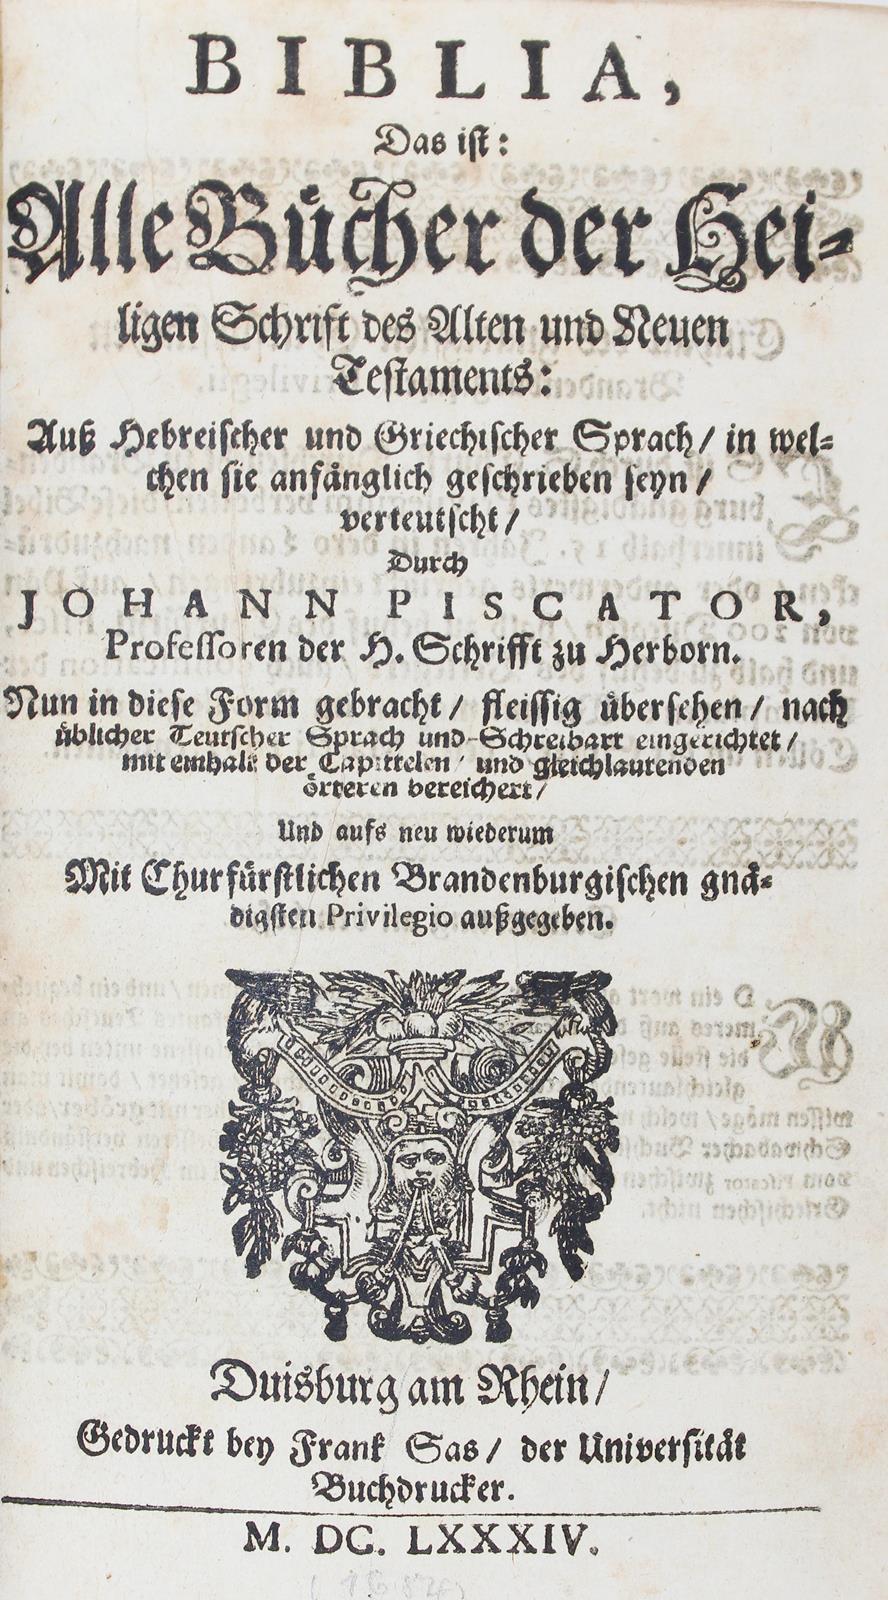 BIBLIA,
Das ist:
Alle Bücher der Hei-
ligen Schrift des Alten und Neuen
Testaments:
Auß Hebreischer und Griechischer Sprach/ in wel-
chen sie anfänglich geschrieben seyn/
verteutscht/
Durch
JOHANN PISCATOR,
Professoren der H. Schrifft zu Herborn.
Nun in diese Form gebracht/ fleissig übersehen/ nach
üblicher Teutscher Sprach und Schreibart eingerichtet/
mit einhalt der Capittelen/ und gleichlautenden
örteren bereichert/
Und aufs neu wiederum
Mit Churfürstlichen Brandenburgischen gnä-
digsten Privilegio außgegeben.
Duisburg am Rhein/
Gedruckt bey Frank Sas/ der Universität
Buchdrucker.
M. DC. LXXXIV.
(1684)